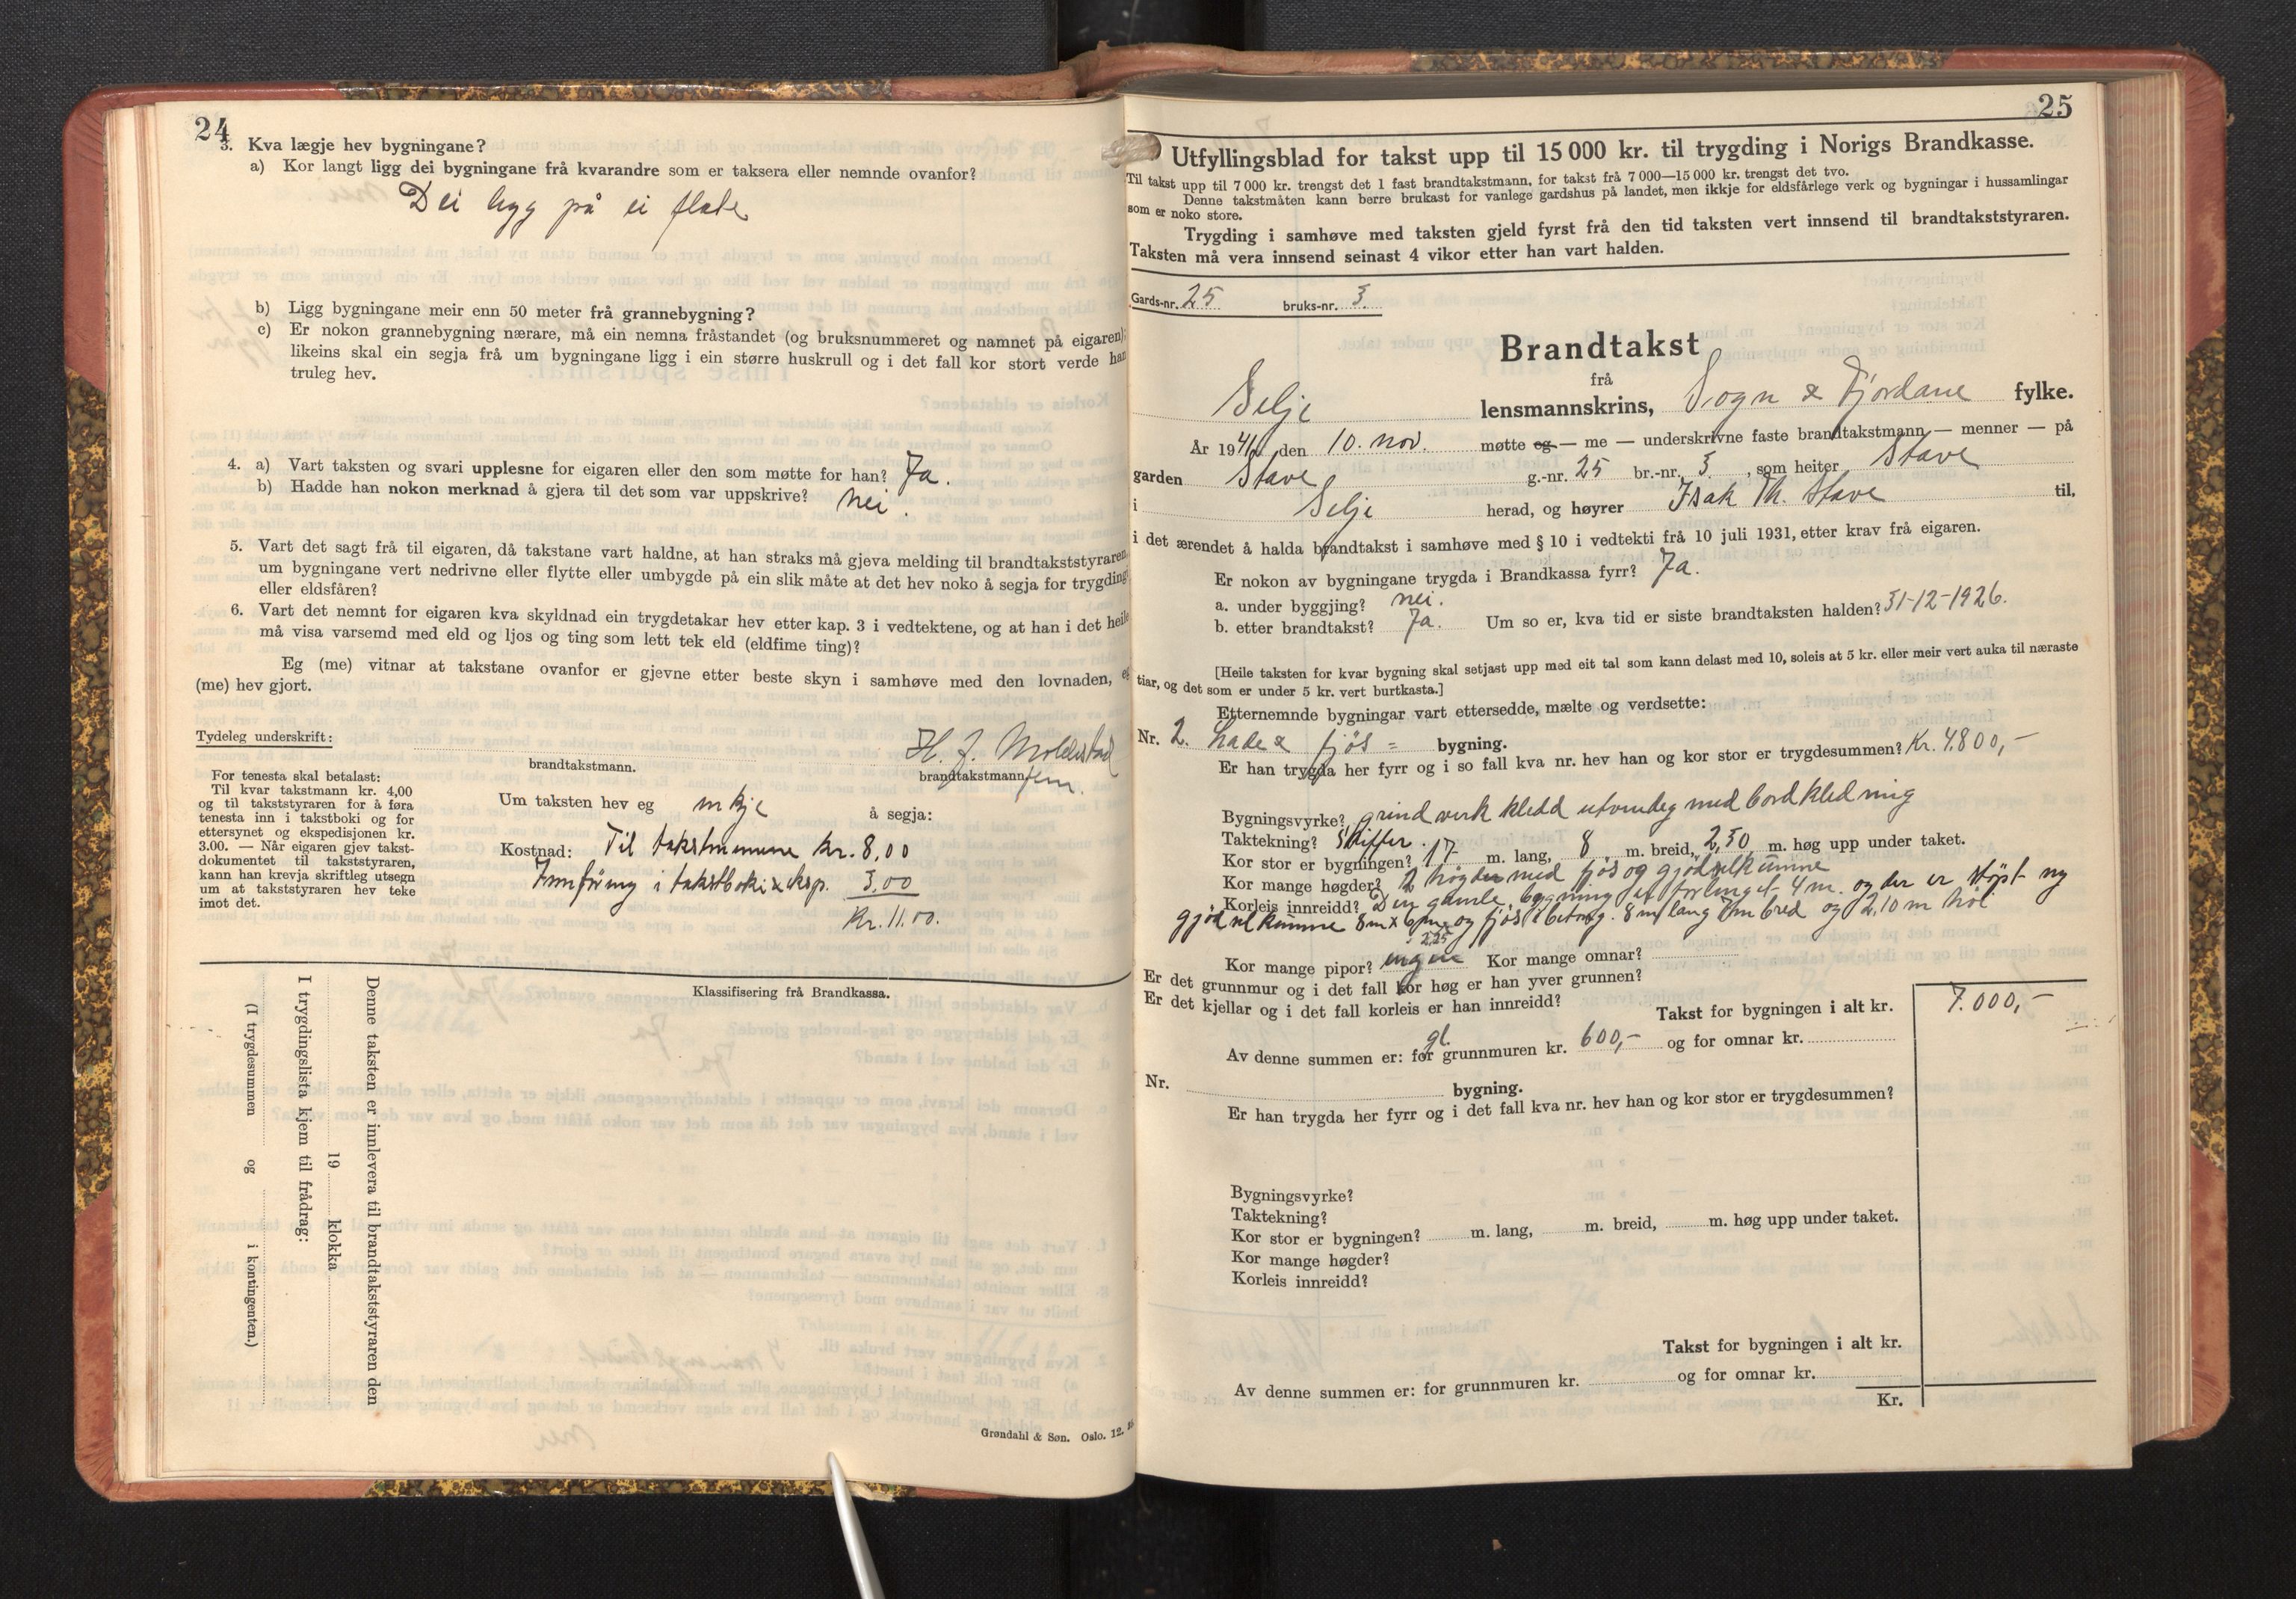 24
3. Kva lægje hev bygningane?
a) Kor langt ligg dei bygningane frå kvarandre som er taksera eller nemnde ovanfor?
Dei lygg på ei flate
b) Ligg bygningane meir enn 50 meter frå grannebygning?
c) Er nokon grannebygning nærare, må ein nemna fråstandet (og bruksnummeret og namnet på eigaren);
likeins skal ein segja frå um bygningane ligg i ein større huskrull og i det fall kor stort verde han
truleg hev.
4. a) Vart taksten og svari upplesne for eigaren eller den som møtte for han? Ja.
b) Hadde han nokon merknad å gjera til det som var uppskrive? nei.
5. Vart det sagt frå til eigaren, då takstane vart haldne, at han straks må gjeva melding til brandtakststyraren,
um bygningane vert nedrivne eller flytte eller umbygde på ein slik måte at det hev noko å segja for trygdingi
eller eldsfåren?
6. Vart det nemnt for eigaren kva skyldnad ein trygdetakar hev etter kap. 3 i vedtektene, og at han i det heile
må visa varsemd med eld og ljos og ting som lett tek eld (eldfime ting)?
Eg (me) vitnar at takstane ovanfor er gjevne etter beste skyn i samhøve med den lovnaden, eg
(me) hev gjort.
Tydeleg underskrift:
H. J. Moldestad
brandtakstmann.
brandtakstmann.
For tenesta skal betalast:
Til kvar takstmann kr. 4,00
og til takststyraren for å føra
tenesta inn i takstboki og for
ettersynet og ekspedisjonen kr.
3.00. — Når eigaren gjev takst-
dokumentet til takststyraren,
kann han krevja skriftleg utsegn
um at takststyraren hev teke
imot det.
Um taksten hev eg inkje å segja:
Kostnad: Til takstmennene kr. 8,00
Innføring i takstboki & eksp. 3,00
Kr. 11.00.
Klassifisering frå Brandkassa.
Denne taksten er innlevera til brandtakststyraren den
19 klokka
I trygdingslista kjem til frådrag:
(I trygdesummen og i kontingenten.)
Grøndahl & Søn. Oslo. 12.
25
Utfyllingsblad for takst upp til 15 000 kr. til trygding i Norigs Brandkasse.
Til takst upp til 7 000 kr. trengst det 1 fast brandtakstmann, for takst frå 7 000—15 000 kr. trengst det tvo.
Denne takstmåten kann berre brukast for vanlege gardshus på landet, men ikkje for eldsfårlege verk og bygningar i hussamlingar
som er noko store.
Trygding i samhøve med taksten gjeld fyrst frå den tid taksten vert innsend til brandtakststyraren.
Taksten må vera innsend seinast 4 vikor etter han vart halden.
Gards-nr. 25 bruks-nr. 3.
Brandtakst
frå
Selje lensmannskrins, Sogn & Fjordane fylke.
År 1941 den 10. nov. møtte eg — me — underskrivne faste brandtakstmann — menner — på
garden Stave g.-nr. 25 br.-nr. 3, som heiter Stave
i Selje herad, og høyrer Isak Th. Stave til,
i det ærendet å halda brandtakst i samhøve med § 10 i vedtekti frå 10 juli 1931, etter krav frå eigaren.
Er nokon av bygningane trygda i Brandkassa fyrr? Ja.
a. under byggjing? nei.
b. etter brandtakst? Ja. Um so er, kva tid er siste brandtaksten halden? 31-12-1926.
[Heile taksten for kvar bygning skal setjast upp med eit tal som kann delast med 10, soleis at 5 kr. eller meir vert auka til næraste
tiar, og det som er under 5 kr. vert burtkasta.]
Etternemnde bygningar vart ettersedde, mælte og verdsette:
Nr. 2. Løde & fjøs = bygning.
Er han trygda her fyrr og i so fall kva nr. hev han og kor stor er trygdesummen? Kr. 4.800,-
Bygningsvyrke? grindverk kledd utvendeg med bordkledning
Taktekning? Skiffer.
Kor stor er bygningen? 17 m. lang, 8 m. breid, 2,50 m. høg upp under taket.
Kor mange høgder? 2 høgder med fjøs og gjødselkumme
Korleis innreidd? Den gamle bygning er forlenget 4 m. og der er støpt ny
gjødselkumme 8m x 6m x 2,25 og fjøs i betong. 8 m lang 7m bred og 2,10 m høi
Kor mange pipor? ingen Kor mange omnar?
Er det grunnmur og i det fall kor høg er han yver grunnen?
Er det kjellar og i det fall korleis er han innreidd?
Takst for bygningen i alt kr. 7.000,-
Av denne summen er: for gl. grunnmuren kr. 600,- og for omnar kr.
Nr. bygning.
Er han trygda her fyrr og i det fall kva nr. hev han og kor stor er trygdesummen?
Bygningsvyrke?
Taktekning?
Kor stor er bygningen? m. lang, m. breid, m. høg upp under taket.
Kor mange høgder?
Korleis innreidd?
Takst for bygningen i alt kr.
Av denne summen er: for grunnmuren kr. og for omnar kr.
Kr.